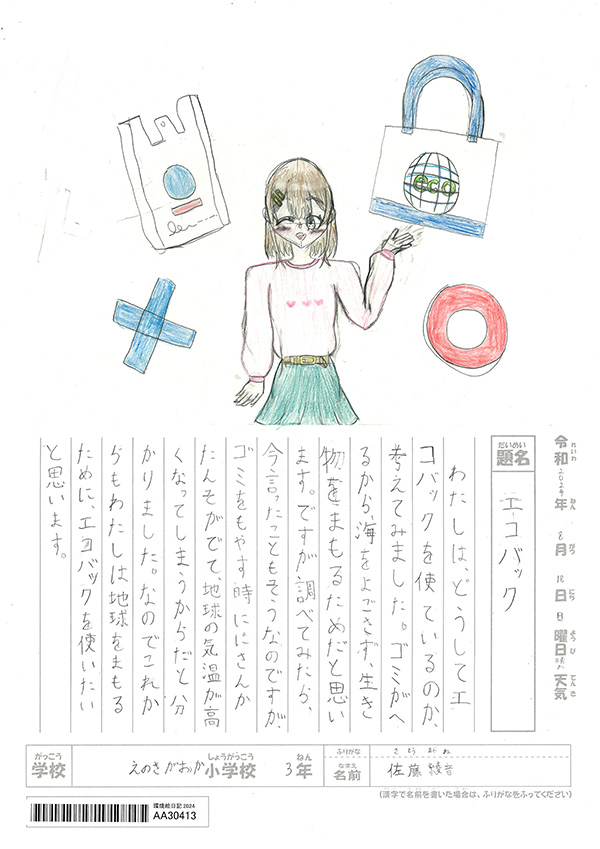 eco
だいめい
題名
エコバック
れいわ ねん がつ にち ようび てんき
令和2024年8月18日日曜日晴天気
わたしは、どうしてエ
コバックを使ているのか、
考えてみました。ゴミがへ
るから、海をよごさず、生き
物をまもるためだと思い
ます。ですが調べてみたら、
今言ったこともそうなのですが、
ゴミをもやす時ににさんか
たんそがでて、地球の気温が高
くなってしまうからだと分
かりました。なのでこれか
らもわたしは地球をまもる
ために、エコバックを使いたい
と思います。
がっこう しょうがっこう ねん
学校 えのきがおか小学校 3年
ふりがな さとう
なまえ
名前 佐藤綾音
(漢字で名前を書いた場合は、ふりがなをふってください)
環境絵日記2024
AA30413